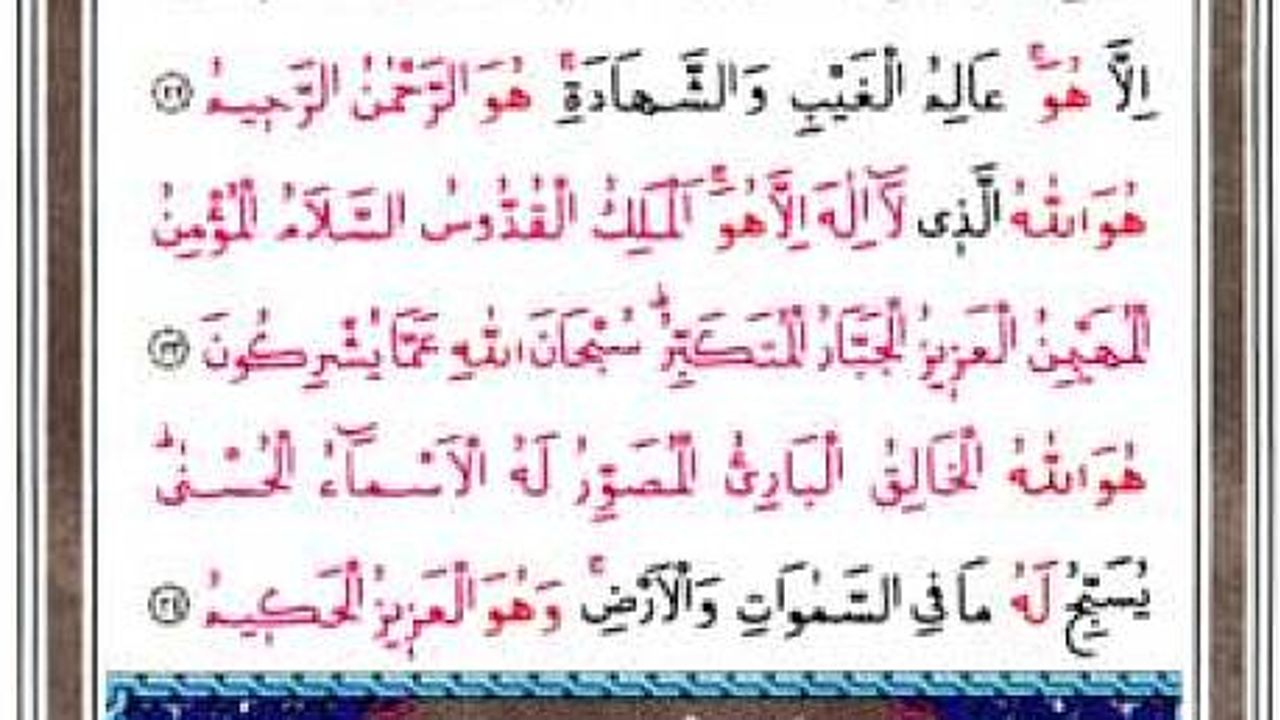 اِلَّا هُوَۚ عَالِمُ الْغَيْبِ وَالشَّهَادَةِۚ هُوَ الرَّحْمٰنُ الرَّحٖيمُ ﴿٢٢﴾
هُوَ اللّٰهُ الَّذٖى لَٓا اِلٰهَ اِلَّا هُوَۚ اَلْمَلِكُ الْقُدُّوسُ السَّلَامُ الْمُؤْمِنُ
الْمُهَيْمِنُ الْعَزٖيزُ الْجَبَّارُ الْمُتَكَبِّرُؕ سُبْحَانَ اللّٰهِ عَمَّا يُشْرِكُونَ ﴿٢٣﴾
هُوَ اللّٰهُ الْخَالِقُ الْبَارِئُ الْمُصَوِّرُ لَهُ الْاَسْمَٓاءُ الْحُسْنٰىؕ
يُسَبِّحُ لَهُ مَا فِى السَّمٰوَاتِ وَالْاَرْضِۚ وَهُوَ الْعَزٖيزُ الْحَكٖيمُ ﴿٢٤﴾